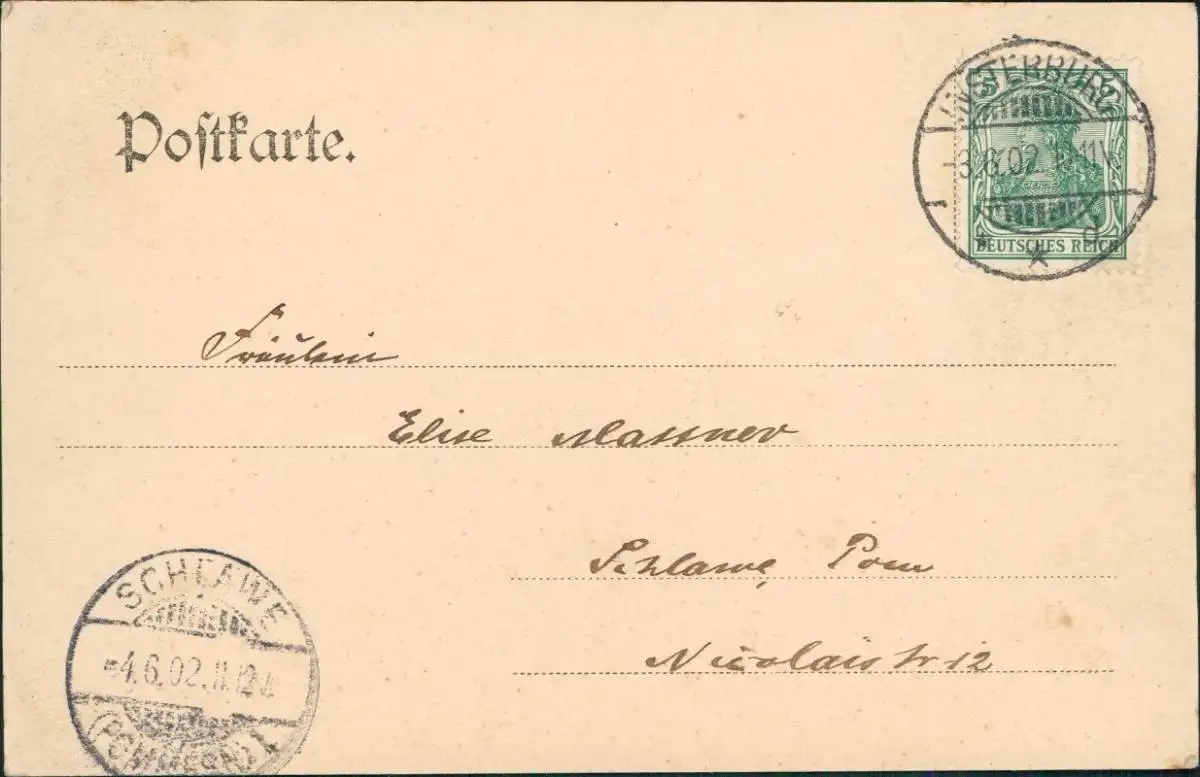 Postkarte.
INSTERBURG
-3.6.02. 11
* d
5 5
DEUTSCHES REICH
Fräulein
Elise Massner
Schlawe, Pom
Nicolaistr 12
SCHLAWE
-4.6.02.11-12
(POMMERN)